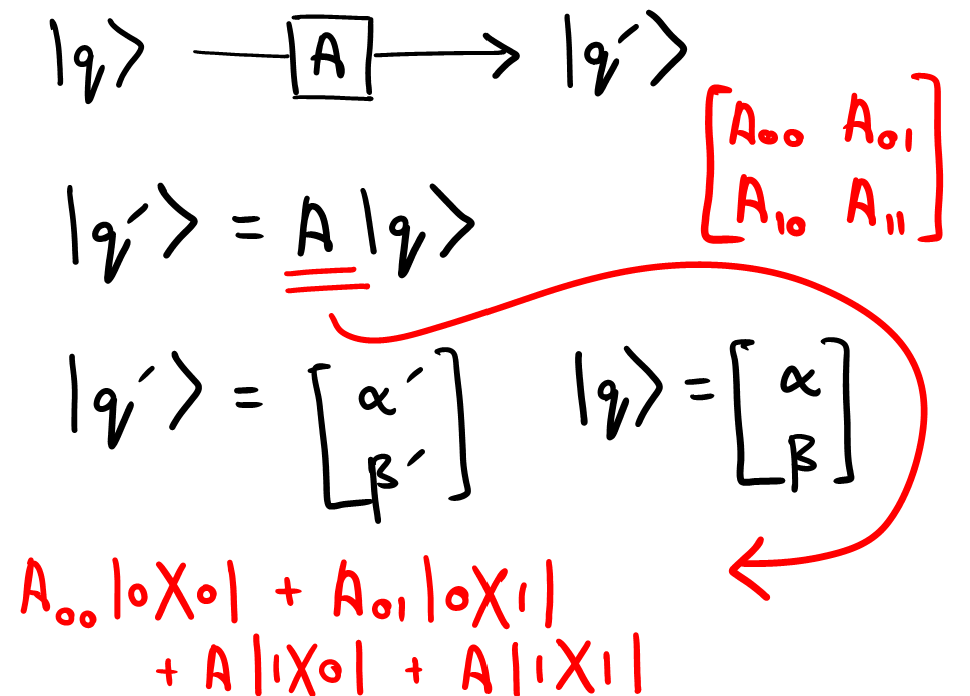 |q⟩ —[A]→ |q′⟩
[A₀₀ A₀₁
A₁₀ A₁₁]
|q′⟩ = A|q⟩
|q′⟩ = [α′ β′] |q⟩ = [α β]
A₀₀|0⟩⟨0| + A₀₁|0⟩⟨1|
+ A|1⟩⟨0| + A|1⟩⟨1|